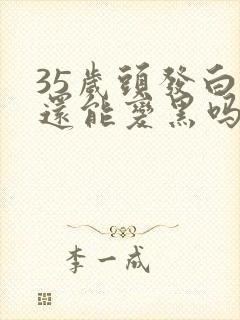 35歲頭發白
還能變黑嗎
李一成